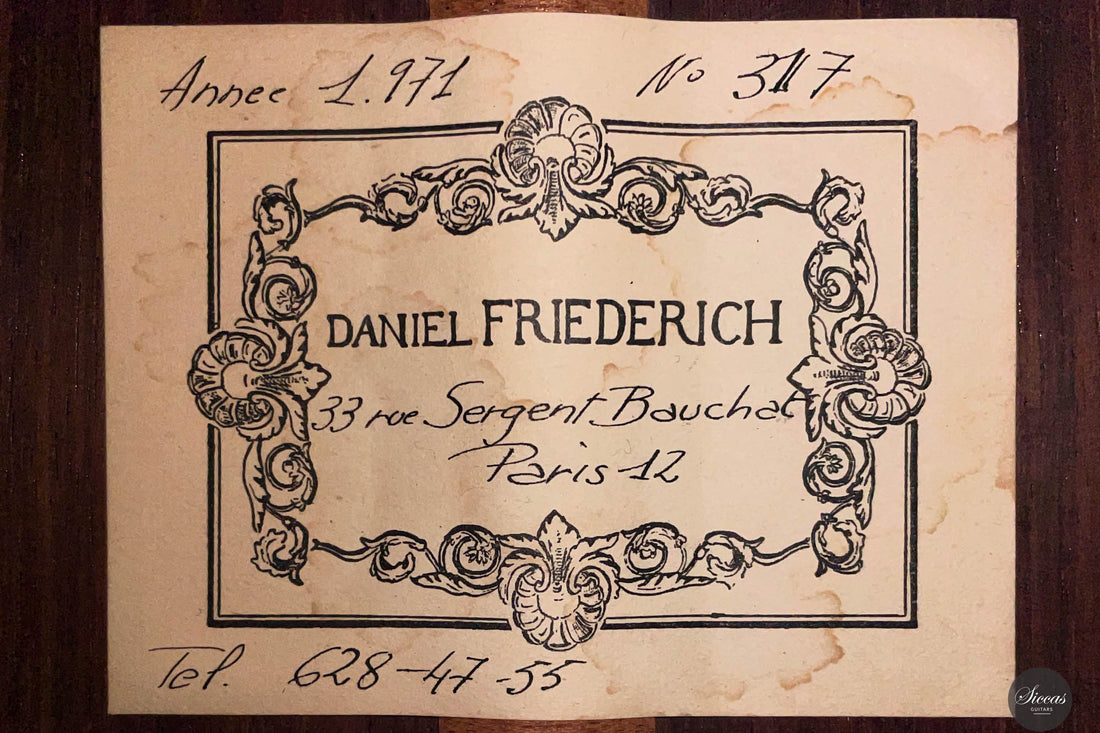 Annee 1.971 No 317
DANIEL FRIEDERICH
33 rue Sergent Bauchat
Paris 12
Tel. 628-47-55
Siccas
GUITARS